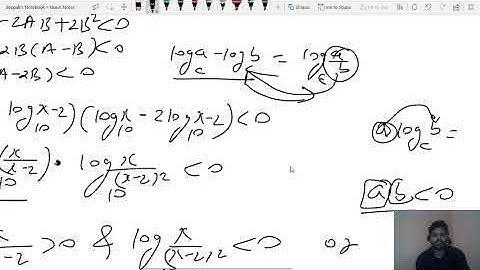 deepak's Notebook • Quick Notes
- 2AB + 2B² < 0
2B(A - B) < 0
A - 2B) < 0
log_c a - log_c b = log_c a/b
log_10 x-2) (log_10 x - 2 log_10 x-2) < 0
a log_c b =
(x/x-2) • log_10 x/(x-2)² < 0
a b < 0
x/x-2 > 0 & log_10 x/(x-2)² < 0 or